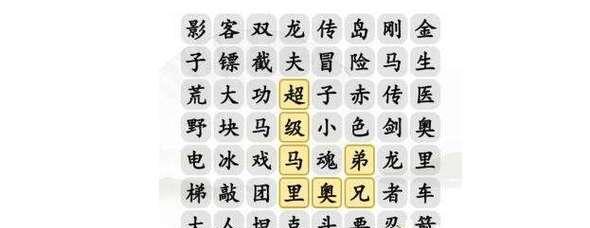 影客双龙传岛刚金
子镖截夫冒险马生
荒大功超子赤传医
野块马级小色剑奥
电冰戏马魂弟龙里
梯敲团里奥兄者车
人坦克斗忍箭